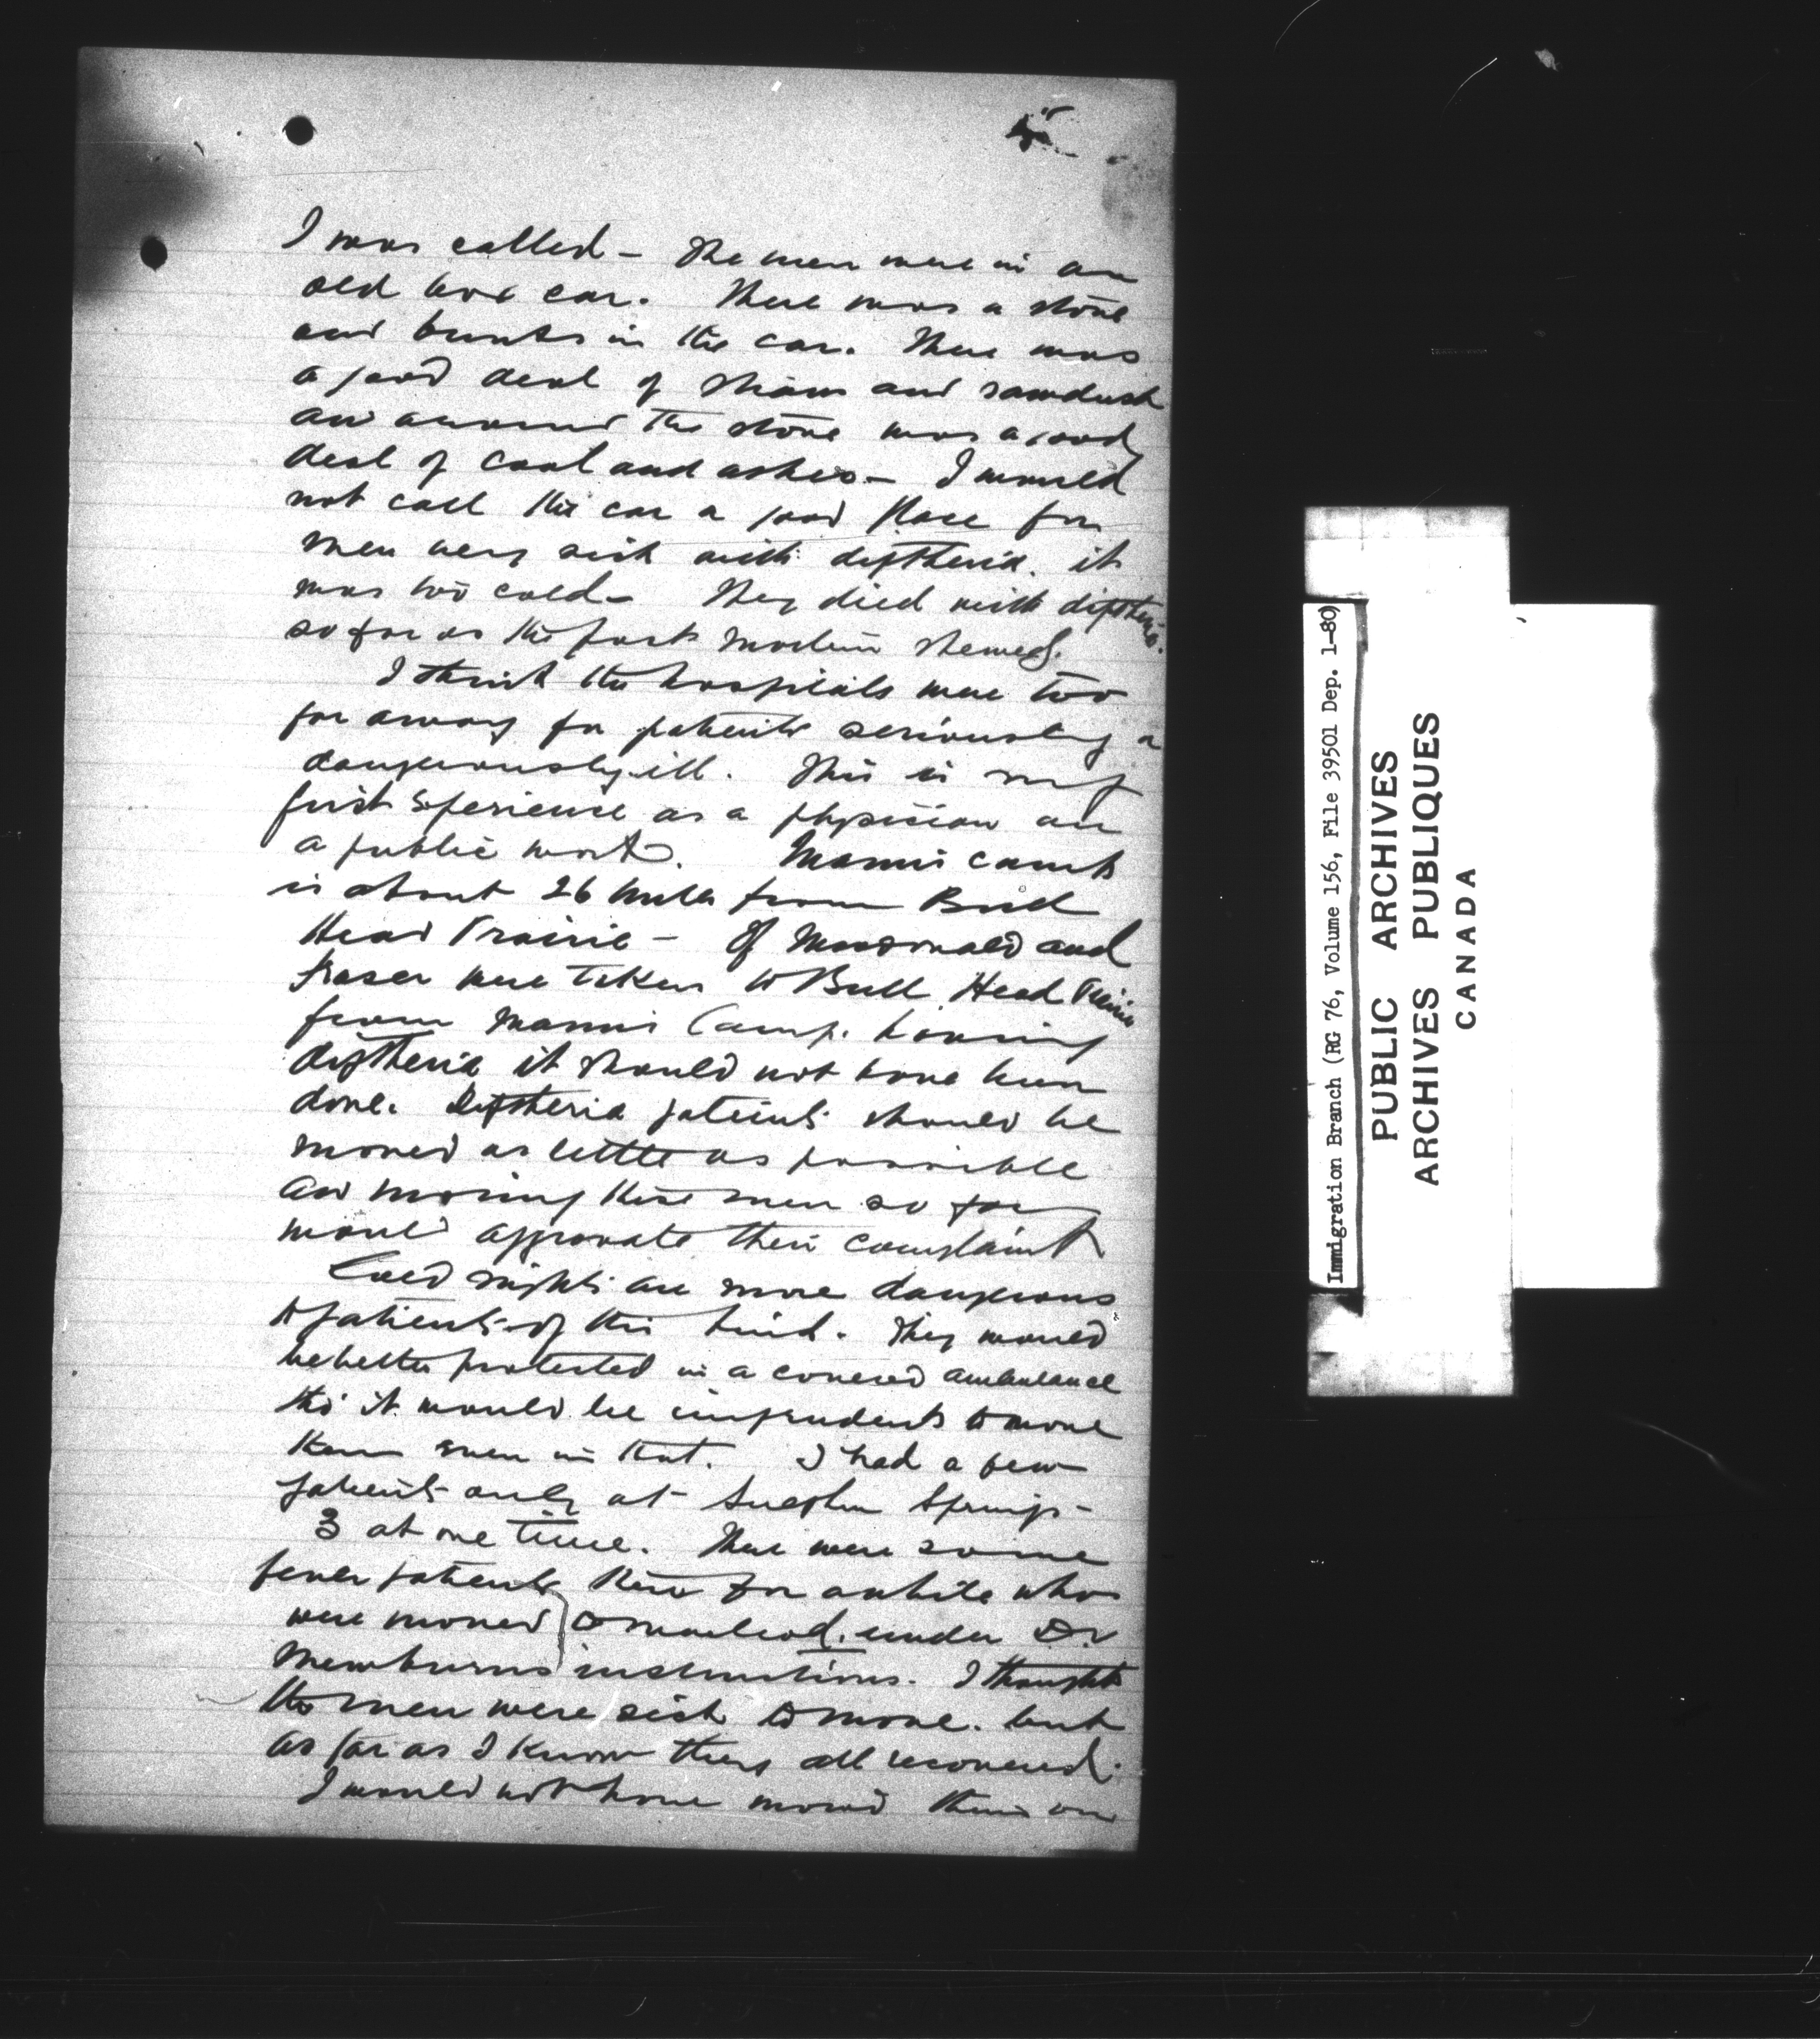 5
I was called – The men were in an
old box car. There was a stove
and bunks in the car. There was
a good deal of straw and sawdust
and around the stove was a good
deal of coal and ashes – I would
not call the car a good place for
men very sick with diptheria. it
was too cold – They died with diptheria.
so far as the post mortem showed.
I think the hospitals were too
far away for patients seriously or
dangerously ill. This is my
first experience as a physician on
a public work. Manns camp
is about 26 miles from Bull
Head Prairie – If Macdonald and
Fraser were taken to Bull Head Prairie
from Manns Camp. having
diptheria it should not have been
done. Diptheria patients should be
moved as little as possible
and moving these men so far
would aggravate their complaint
Cold nights are more dangerous
to patients of this kind. They would
be better protected in a covered ambulance
tho it would be imprudent to move
them even in that. I had a few
patients only at Sulphur Springs –
3 at one time. There were some
fever patients there for awhile who
were moved to Macleod. under Dr
Mewburns instructions. I thought
the men were sick to move. but
as far as I know they all recovered.
I would not have moved them on
Immigration Branch (RG 76, Volume 156, File 39501 Dep. 1-80)
PUBLIC ARCHIVES
ARCHIVES PUBLIQUES
CANADA